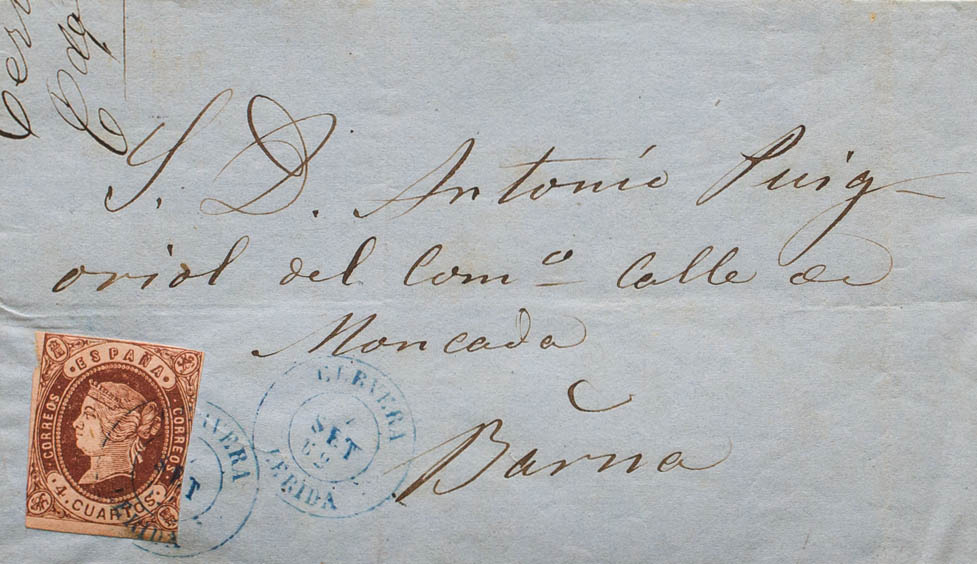 S. D. Antonio Puig-
oriol del Comº Calle de
Moncada
Barna
ESPAÑA
CORREOS
CORREOS
4. CUARTOS.
CERVERA
SET
62
LERIDA
SET